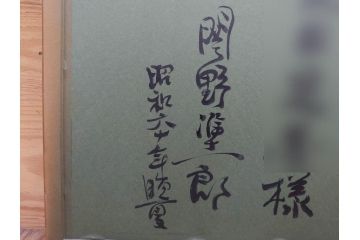 様
関野準一郎
昭和六十年